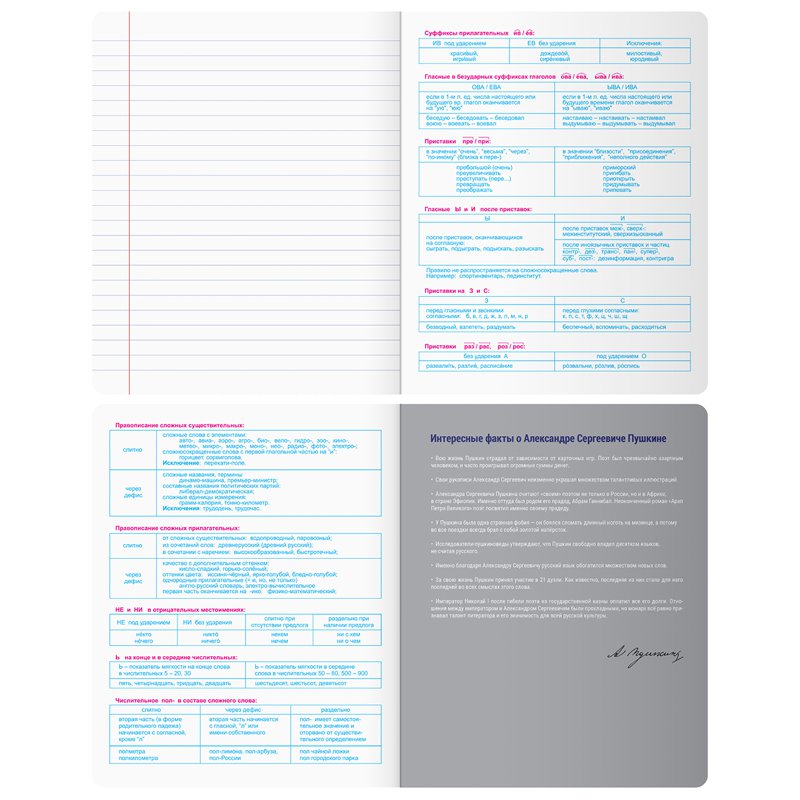 Суффиксы прилагательных ив / ев:
ИВ под ударением ЕВ без ударения Исключения:
красивый, дождевой, милостивый,
игривый сиреневый юродивый
Гласные в безударных суффиксах глаголов ова / ева, ыва / ива:
ОВА / ЕВА ЫВА / ИВА
если в 1-м л. ед. числа настоящего или если в 1-м л. ед. числа настоящего или
будущего вр. глагол оканчивается будущего времени глагол оканчивается
на "ую", "юю" на "ываю", "иваю"
беседую – беседовать – беседовал настаиваю – настаивать – настаивал
воюю – воевать – воевал выдумываю – выдумывать – выдумывал
Приставки пре / при:
в значении "очень", "весьма", "через", в значении "близости", "присоединения",
"по-иному" (близка к пере-) "приближения", "неполного действия"
пребольшой (очень) приморский
преувеличивать пригибать
преступать (пере...) приоткрыть
превращать придумывать
преображать припевать
Гласные Ы и И после приставок:
Ы И
после приставок, оканчивающихся
на согласную:
сыграть, подыграть, подыскать, разыскать
после приставок меж-, сверх-:
межинститутский, сверхизысканный
после иноязычных приставок и частиц
контр-, дез-, транс-, пан-, супер-,
суб-, пост-: дезинформация, контригра
Правило не распространяется на сложносокращенные слова.
Например: спортинвентарь, пединститут.
Приставки на З и С:
З С
перед гласными и звонкими перед глухими согласными:
согласными: б, в, г, д, ж, з, л, м, н, р к, п, с, т, ф, х, ц, ч, ш, щ
безводный, взлететь, раздумать беспечный, вспоминать, расходиться
Приставки раз / рас, роз / рос:
без ударения А под ударением О
развалить, разлив, расписание розвальни, розлив, роспись
Правописание сложных существительных:
слитно
сложные слова с элементами:
авто-, авиа-, аэро-, агро-, био-, вело-, гидро-, зоо-, кино-,
метео-, микро-, макро-, моно-, нео-, радио-, фото-, электро-;
сложносокращенные слова с первой глагольной частью на "и":
горицвет, сорвиголова.
Исключение: перекати-поле.
через
дефис
сложные названия, термины:
динамо-машина, премьер-министр;
составные названия политических партий:
либерал-демократическая;
сложные единицы измерения:
грамм-калория, тонно-километр.
Исключения: трудодень, трудочас.
Правописание сложных прилагательных:
слитно
от сложных существительных: водопроводный, паровозный;
из сочетаний слов: древнерусский (древний русский);
в сочетании с наречием: высокообразованный, быстротечный;
через
дефис
качество с дополнительным оттенком:
кисло-сладкий, горько-солёный;
оттенки цвета: иссиня-чёрный, ярко-голубой, бледно-голубой;
однородные прилагательные (+ и, но, не только)
англо-русский словарь, электро-вычислительное
первая часть оканчивается на -ико: физико-математический;
НЕ и НИ в отрицательных местоимениях:
НЕ под ударением НИ без ударения слитно при отсутствии предлога раздельно при наличии предлога
некто никто ненем ни с кем
нечего ничего ничем ни о чем
Ь на конце и в середине числительных:
Ь – показатель мягкости на конце слова Ь – показатель мягкости в середине
в числительных 5 – 20, 30 слова в числительных 50 – 80, 500 – 900
пять, четырнадцать, тридцать, двадцать шестьдесят, шестьсот, девятьсот
Числительное пол- в составе сложного слова:
слитно через дефис раздельно
вторая часть (в форме вторая часть начинается пол- имеет самостоя-
родительного падежа) с гласной, "л" или тельное значение и
начинается с согласной, имени собственного оторвано от существи-
кроме "л" тельного определением
полметра пол-лимона, пол-арбуза, пол чайной ложки
полкилометра пол-России пол городского парка
Интересные факты о Александре Сергеевиче Пушкине
• Всю жизнь Пушкин страдал от зависимости от карточных игр. Поэт был чрезвычайно азартным
человеком, и часто проигрывал огромные суммы денег.
• Свои рукописи Александр Сергеевич неизменно украшал множеством талантливых иллюстраций.
• Александра Сергеевича Пушкина считают «своим» поэтом не только в России, но и в Африке,
в стране Эфиопия. Именно оттуда был родом его прадед, Абрам Ганнибал. Неоконченный роман «Арап
Петра Великого» поэт посвятил именно своему прадеду.
• У Пушкина была одна странная фобия – он боялся сломать длинный ноготь на мизинце, а потому
во все поездки всегда брал с собой золотой напёрсток.
• Исследователи-пушкиноведы утверждают, что Пушкин свободно владел десятком языков,
не считая русского.
• Именно благодаря Александру Сергеевичу русский язык обогатился множеством новых слов.
• За свою жизнь Пушкин принял участие в 21 дуэли. Как известно, последняя из них стала для него
последней во всех смыслах этого слова.
• Император Николай I после гибели поэта из государственной казны оплатил все его долги. Отно-
шения между императором и Александром Сергеевичем были прохладными, но монарх всё равно при-
знавал талант литератора и его значимость для всей русской культуры.
А. Пушкинъ